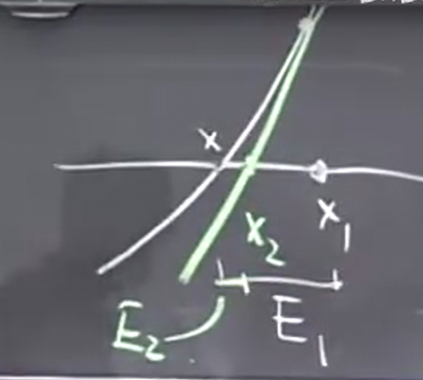 x
x₂ x₁
E₂ E₁